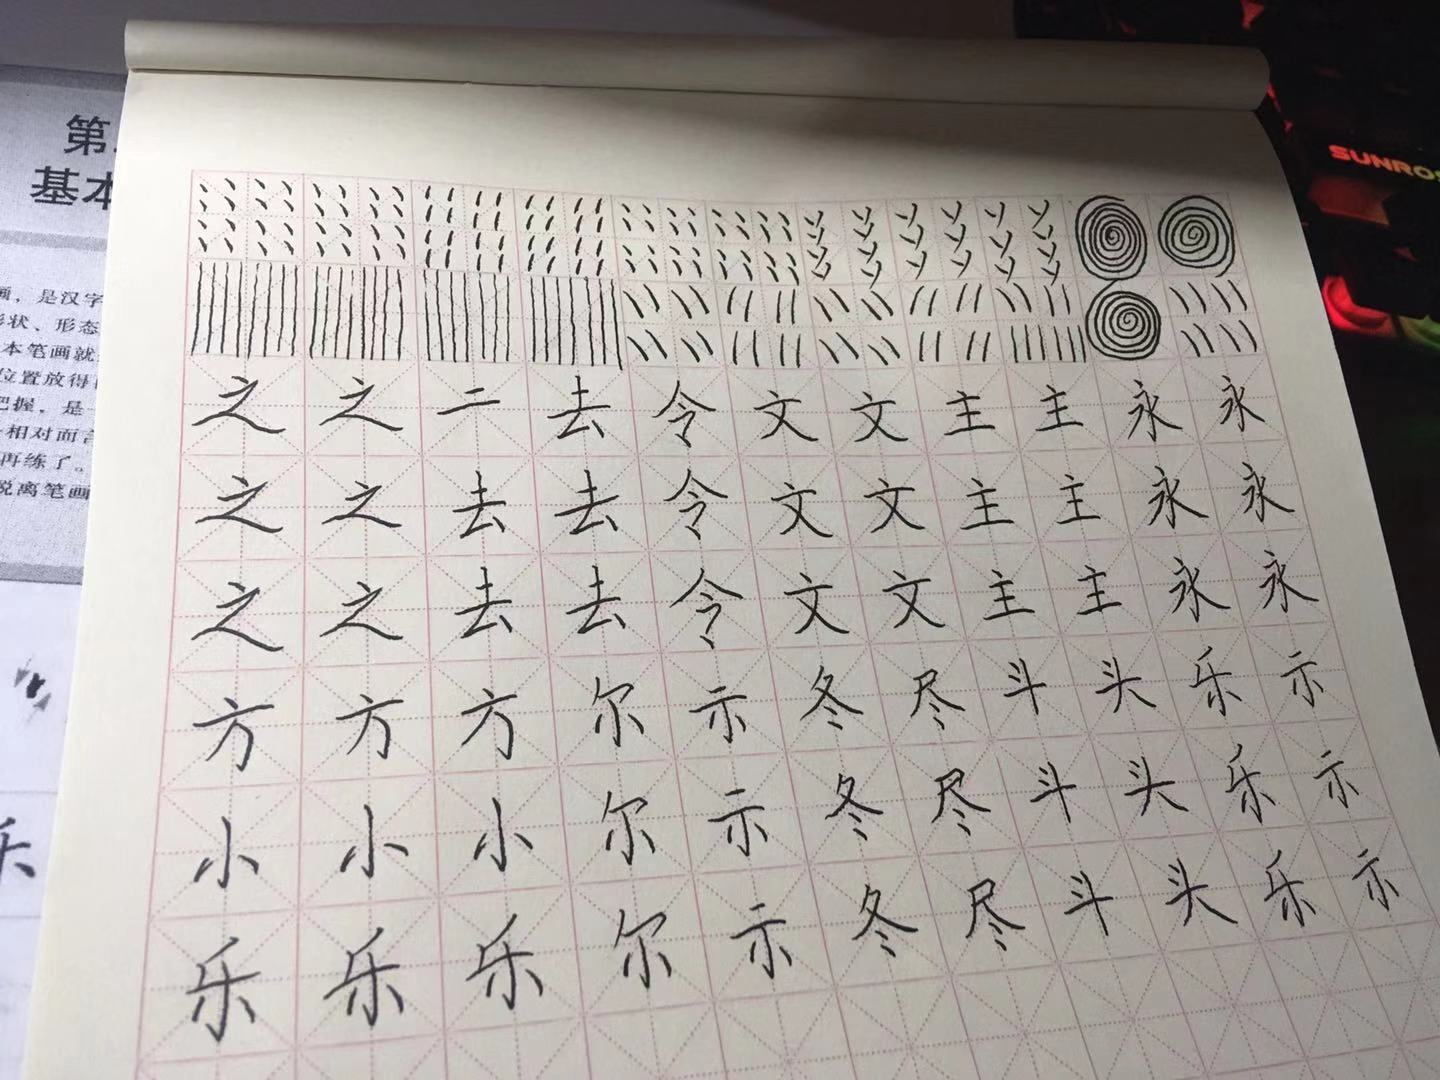 第
基本
SUNROS
画，是汉字
形状、形态
本笔画就
位置放得
把握，是
相对而言
再练了。
脱离笔画
之之二去令文文主主永永
之之去去令文文主主永永
之之去去令文文主主永永
方方方尔示冬尽斗头乐示
小小小尔示冬尽斗头乐示
乐乐乐尔示冬尽斗头乐示
乐